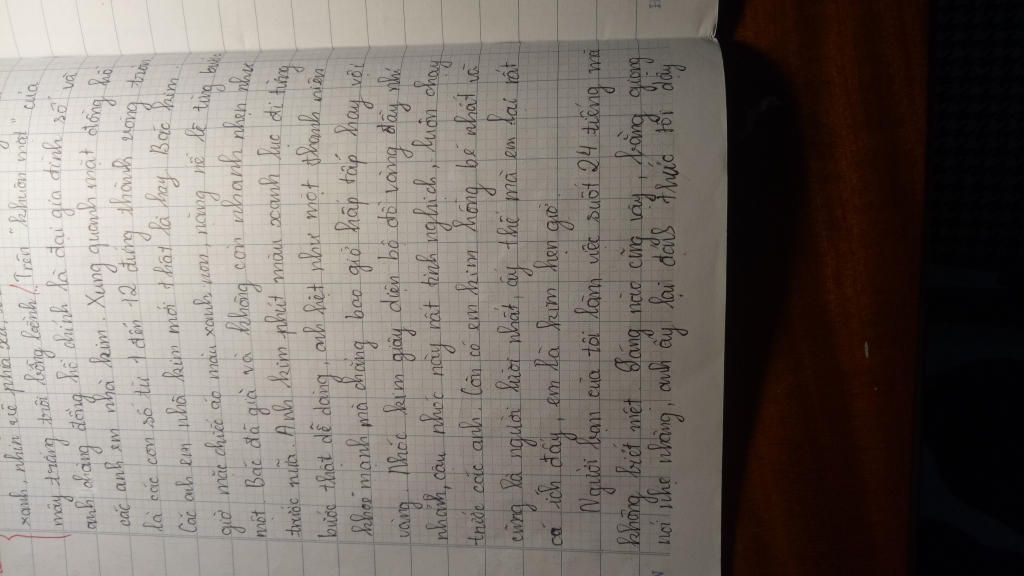 xanh, nhìn về phía xa
mây trắng trôi bồng bềnh. Trên "khuôn mặt" của
anh chàng đồng hồ chính là đại gia đình số và
các anh em nhà kim. Xung quanh mặt đồng hồ
là các con số từ 1 đến 12 đứng thành vòng tròn
Các anh em nhà kim mới thật là hay. Bác kim
giờ mặc chiếc áo màu xanh non, nặng nề lê từng bước
một. Bác đã già và không còn nhanh nhẹn như
trước nữa. Anh kim phút màu xanh lục đi từng
bước thật dễ dàng, anh hiệt như một thanh niên
khoẻ mạnh mà chẳng bao giờ hấp tấp hay vội
vàng. Nhóc kim giây diện bộ đồ vàng đầy nhí
nhảnh, cậu nhóc này rất tinh nghịch, luôn chạy
trước các anh. Còn có em kim hồng bé nhất và
cũng là người lười nhất, ấy thế mà em lại rất
có ích đấy, em là kim hẹn giờ.
Người bạn của tôi làm việc suốt 24 tiếng mà
không biết mệt. Sáng nào cũng vậy, bằng giọng
nói nhẹ nhàng, anh ấy lại đánh thức tôi dậy